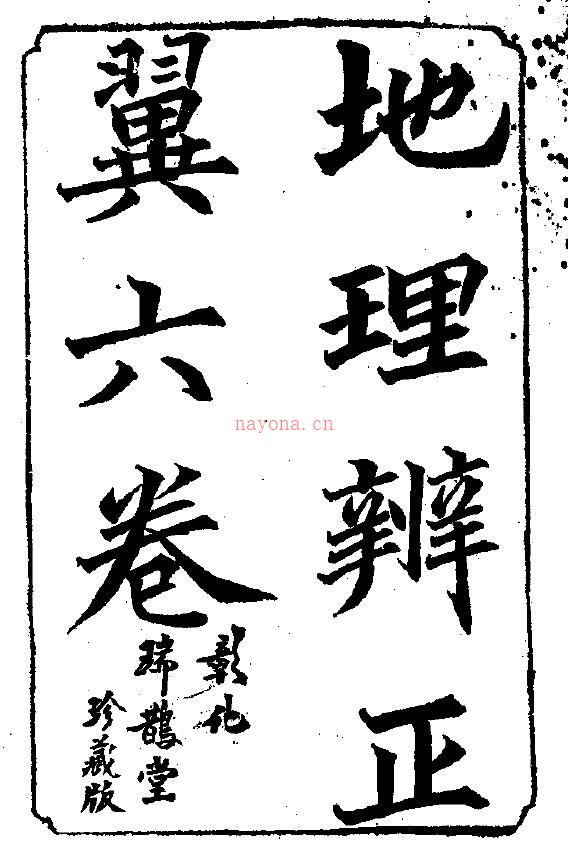 地理辨正
翼六卷
彰化
瑞鵲堂
珍藏版
nayona.cn